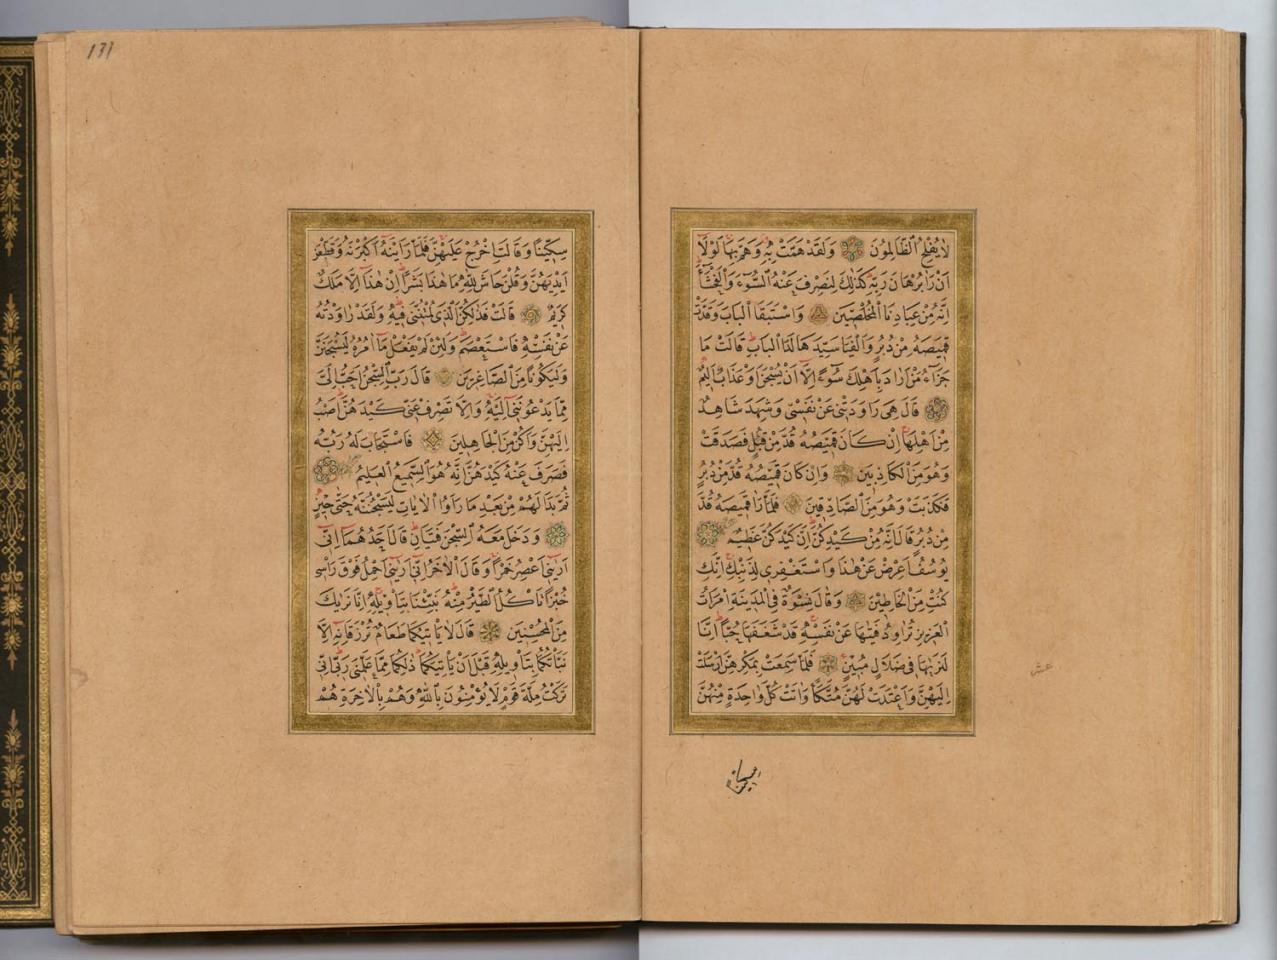 لَا يُفْلِحُ الظَّالِمُونَ وَلَقَدْ هَمَّتْ بِهِ وَهَمَّ بِهَا لَوْلَا
اَنْ رَاٰ بُرْهَانَ رَبِّهِ كَذٰلِكَ لِنَصْرِفَ عَنْهُ السُّوءَ وَالْفَحْشَاءَ
اِنَّهُ مِنْ عِبَادِنَا الْمُخْلَصِينَ وَاسْتَبَقَا الْبَابَ وَقَدَّتْ
قَمِيصَهُ مِنْ دُبُرٍ وَاَلْفَيَا سَيِّدَهَا لَدَا الْبَابِ قَالَتْ مَا
جَزَاءُ مَنْ اَرَادَ بِاَهْلِكَ سُوءًا اِلَّا اَنْ يُسْجَنَ اَوْ عَذَابٌ اَلِيمٌ
قَالَ هِيَ رَاوَدَتْنِي عَنْ نَفْسِي وَشَهِدَ شَاهِدٌ
مِنْ اَهْلِهَا اِنْ كَانَ قَمِيصُهُ قُدَّ مِنْ قُبُلٍ فَصَدَقَتْ
وَهُوَ مِنَ الْكَاذِبِينَ وَاِنْ كَانَ قَمِيصُهُ قُدَّ مِنْ دُبُرٍ
فَكَذَبَتْ وَهُوَ مِنَ الصَّادِقِينَ فَلَمَّا رَاٰ قَمِيصَهُ قُدَّ
مِنْ دُبُرٍ قَالَ اِنَّهُ مِنْ كَيْدِكُنَّ اِنَّ كَيْدَكُنَّ عَظِيمٌ
يُوسُفُ اَعْرِضْ عَنْ هٰذَا وَاسْتَغْفِرِي لِذَنْبِكِ اِنَّكِ
كُنْتِ مِنَ الْخَاطِئِينَ وَقَالَ نِسْوَةٌ فِي الْمَدِينَةِ امْرَاَتُ
الْعَزِيزِ تُرَاوِدُ فَتٰيهَا عَنْ نَفْسِهِ قَدْ شَغَفَهَا حُبًّا اِنَّا
لَنَرٰيهَا فِي ضَلَالٍ مُبِينٍ فَلَمَّا سَمِعَتْ بِمَكْرِهِنَّ اَرْسَلَتْ
اِلَيْهِنَّ وَاَعْتَدَتْ لَهُنَّ مُتَّكَاً وَاٰتَتْ كُلَّ وَاحِدَةٍ مِنْهُنَّ
عشر
١٣١
سِكِّينًا وَقَالَتِ اخْرُجْ عَلَيْهِنَّ فَلَمَّا رَاَيْنَهُ اَكْبَرْنَهُ وَقَطَّعْنَ
اَيْدِيَهُنَّ وَقُلْنَ حَاشَ لِلّٰهِ مَا هٰذَا بَشَرًا اِنْ هٰذَا اِلَّا مَلَكٌ
كَرِيمٌ قَالَتْ فَذٰلِكُنَّ الَّذِي لُمْتُنَّنِي فِيهِ وَلَقَدْ رَاوَدْتُهُ
عَنْ نَفْسِهِ فَاسْتَعْصَمَ وَلَئِنْ لَمْ يَفْعَلْ مَا اٰمُرُهُ لَيُسْجَنَنَّ
وَلَيَكُونًا مِنَ الصَّاغِرِينَ قَالَ رَبِّ السِّجْنُ اَحَبُّ اِلَيَّ
مِمَّا يَدْعُونَنِي اِلَيْهِ وَاِلَّا تَصْرِفْ عَنِّي كَيْدَهُنَّ اَصْبُ
اِلَيْهِنَّ وَاَكُنْ مِنَ الْجَاهِلِينَ فَاسْتَجَابَ لَهُ رَبُّهُ
فَصَرَفَ عَنْهُ كَيْدَهُنَّ اِنَّهُ هُوَ السَّمِيعُ الْعَلِيمُ
ثُمَّ بَدَا لَهُمْ مِنْ بَعْدِ مَا رَاَوُا الْاٰيَاتِ لَيَسْجُنُنَّهُ حَتّٰى حِينٍ
وَدَخَلَ مَعَهُ السِّجْنَ فَتَيَانِ قَالَ اَحَدُهُمَا اِنِّي
اَرٰينِي اَعْصِرُ خَمْرًا وَقَالَ الْاٰخَرُ اِنِّي اَرٰينِي اَحْمِلُ فَوْقَ رَاْسِي
خُبْزًا تَاْكُلُ الطَّيْرُ مِنْهُ نَبِّئْنَا بِتَاْوِيلِهِ اِنَّا نَرٰيكَ
مِنَ الْمُحْسِنِينَ قَالَ لَا يَاْتِيكُمَا طَعَامٌ تُرْزَقَانِهِ اِلَّا
نَبَّاْتُكُمَا بِتَاْوِيلِهِ قَبْلَ اَنْ يَاْتِيَكُمَا ذٰلِكُمَا مِمَّا عَلَّمَنِي رَبِّي اِنِّي
تَرَكْتُ مِلَّةَ قَوْمٍ لَا يُؤْمِنُونَ بِاللّٰهِ وَهُمْ بِالْاٰخِرَةِ هُمْ